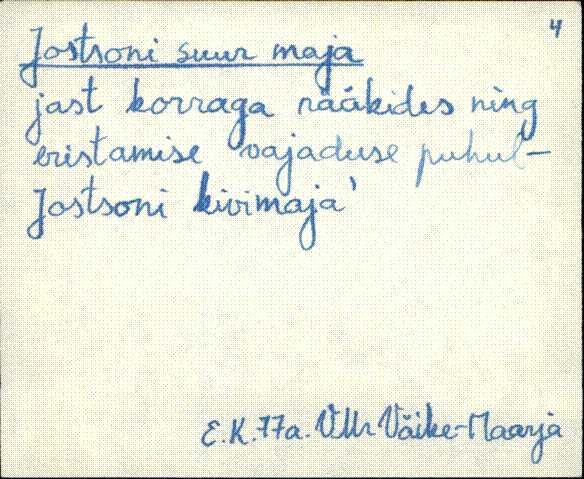 4
Jostsoni suur maja
jast korraga rääkides ning
eristamise vajaduse puhul-
Jostsoni kivimaja'
E.K. 77a. VMr Väike-Maarja